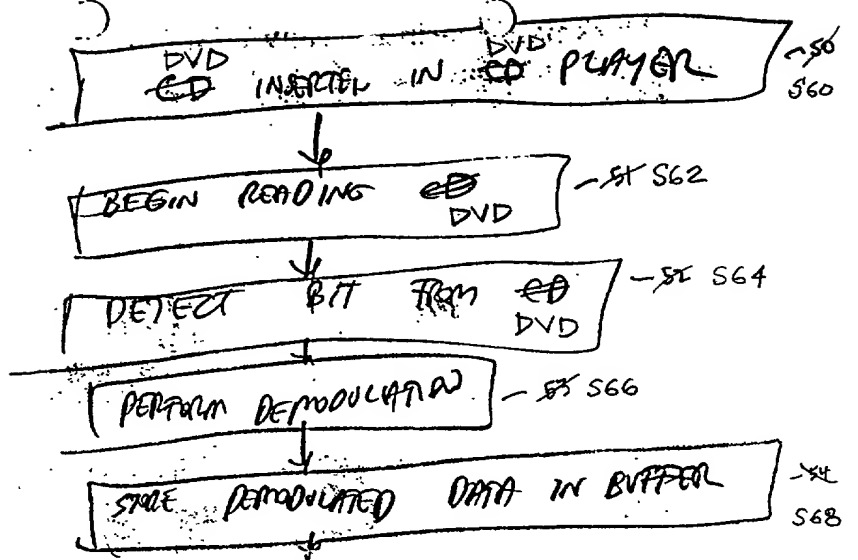 DVD DVD
CD INSERTED IN CD PLAYER S0
S60
BEGIN READING CD S1 S62
DVD
DETECT BIT FROM CD S2 S64
DVD
PERFORM DEMODULATION S3 S66
STORE DEMODULATED DATA IN BUFFER S4
S68